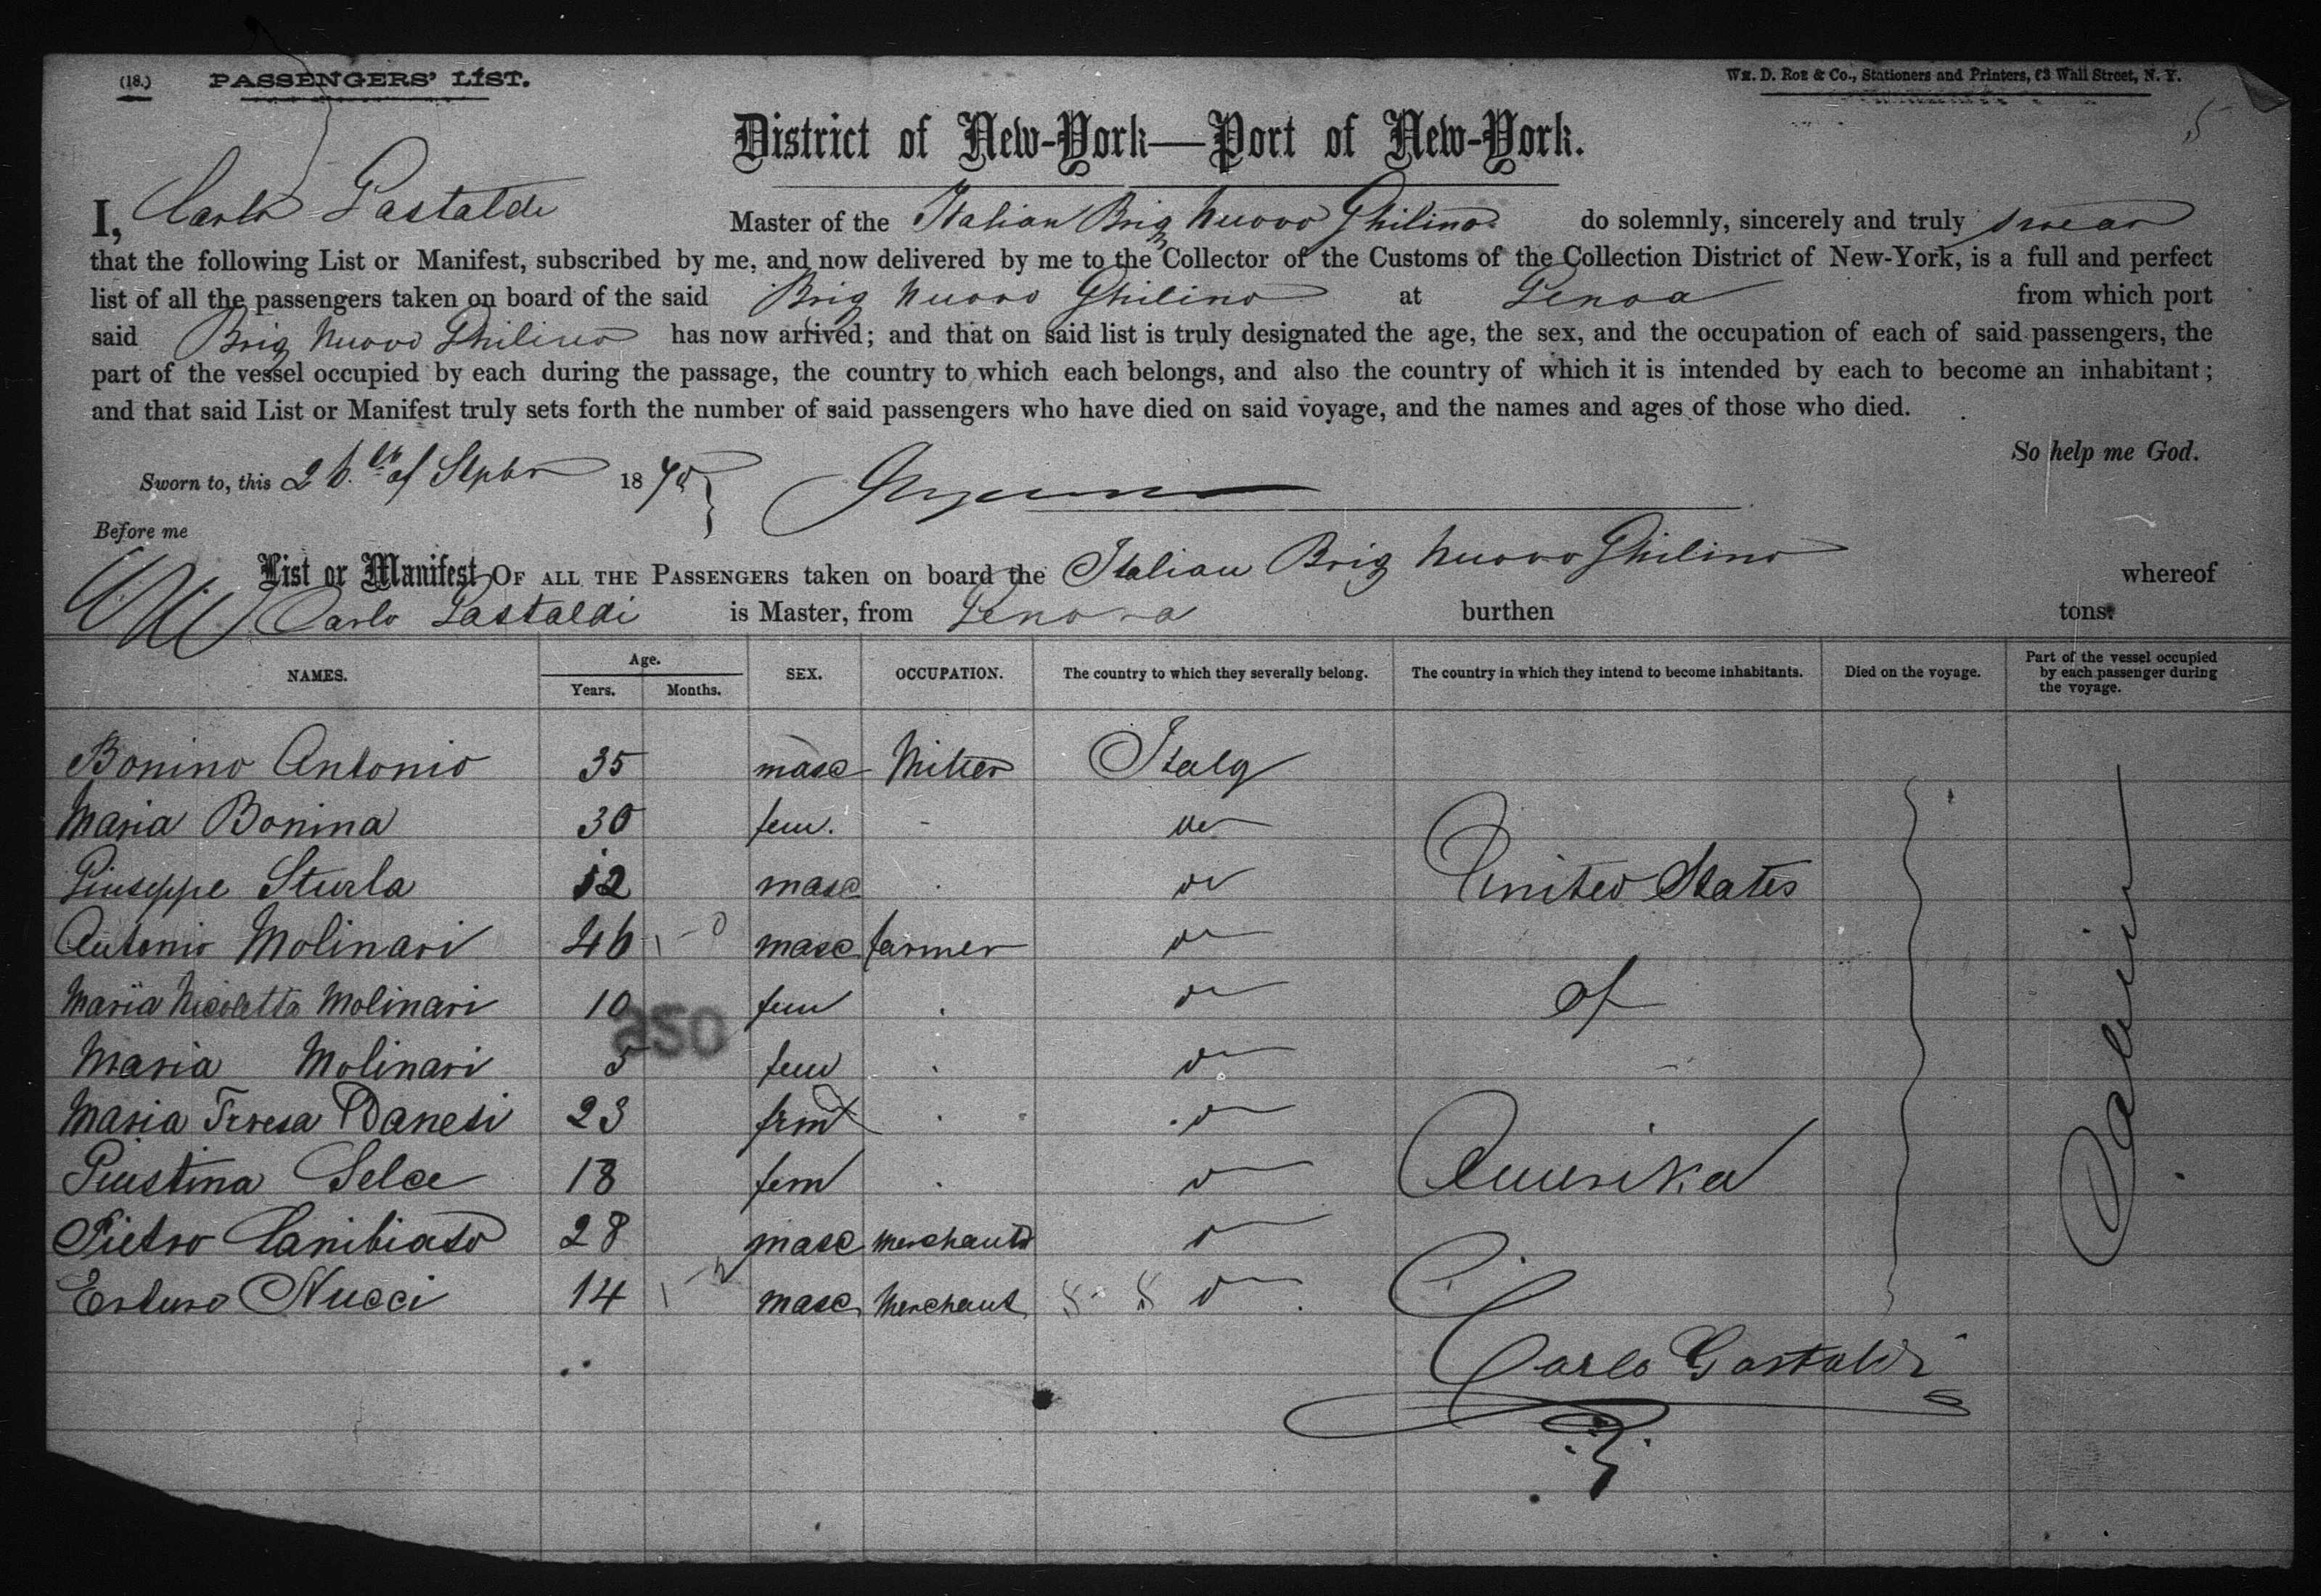 (18.) PASSENGERS' LIST.
Wm. D. Roe & Co., Stationers and Printers, 63 Wall Street, N. Y.
5
District of New-York—Port of New-York.
I, Carlo Gastaldi Master of the Italian Brig Nuovo Ghilino do solemnly, sincerely and truly swear
that the following List or Manifest, subscribed by me, and now delivered by me to the Collector of the Customs of the Collection District of New-York, is a full and perfect
list of all the passengers taken on board of the said Brig Nuovo Ghilino at Genoa from which port
said Brig Nuovo Ghilino has now arrived; and that on said list is truly designated the age, the sex, and the occupation of each of said passengers, the
part of the vessel occupied by each during the passage, the country to which each belongs, and also the country of which it is intended by each to become an inhabitant;
and that said List or Manifest truly sets forth the number of said passengers who have died on said voyage, and the names and ages of those who died.
So help me God.
Sworn to, this 26th of Stpbr 1870
Before me
List or Manifest OF ALL THE PASSENGERS taken on board the Italian Brig Nuovo Ghilino whereof
Carlo Gastaldi is Master, from Genova burthen tons.
NAMES. Age. Years. Months. SEX. OCCUPATION. The country to which they severally belong. The country in which they intend to become inhabitants. Died on the voyage. Part of the vessel occupied by each passenger during the voyage.
Bonino Antonio 35 masc Italy
Maria Bonina 30 fem.
Giuseppe Sturla 12 masc United States
Antonio Molinari 46 masc farmer
Maria Nicoletta Molinari 10 fem of
250
Maria Molinari 5 fem
Maria Teresa Danesi 23 fem
Giustina Selce 18 fem Amerika
Pietro Canibiaso 28 masc merchant
Erturo Nucci 14 masc merchant
Cabin
Carlo Gastaldi